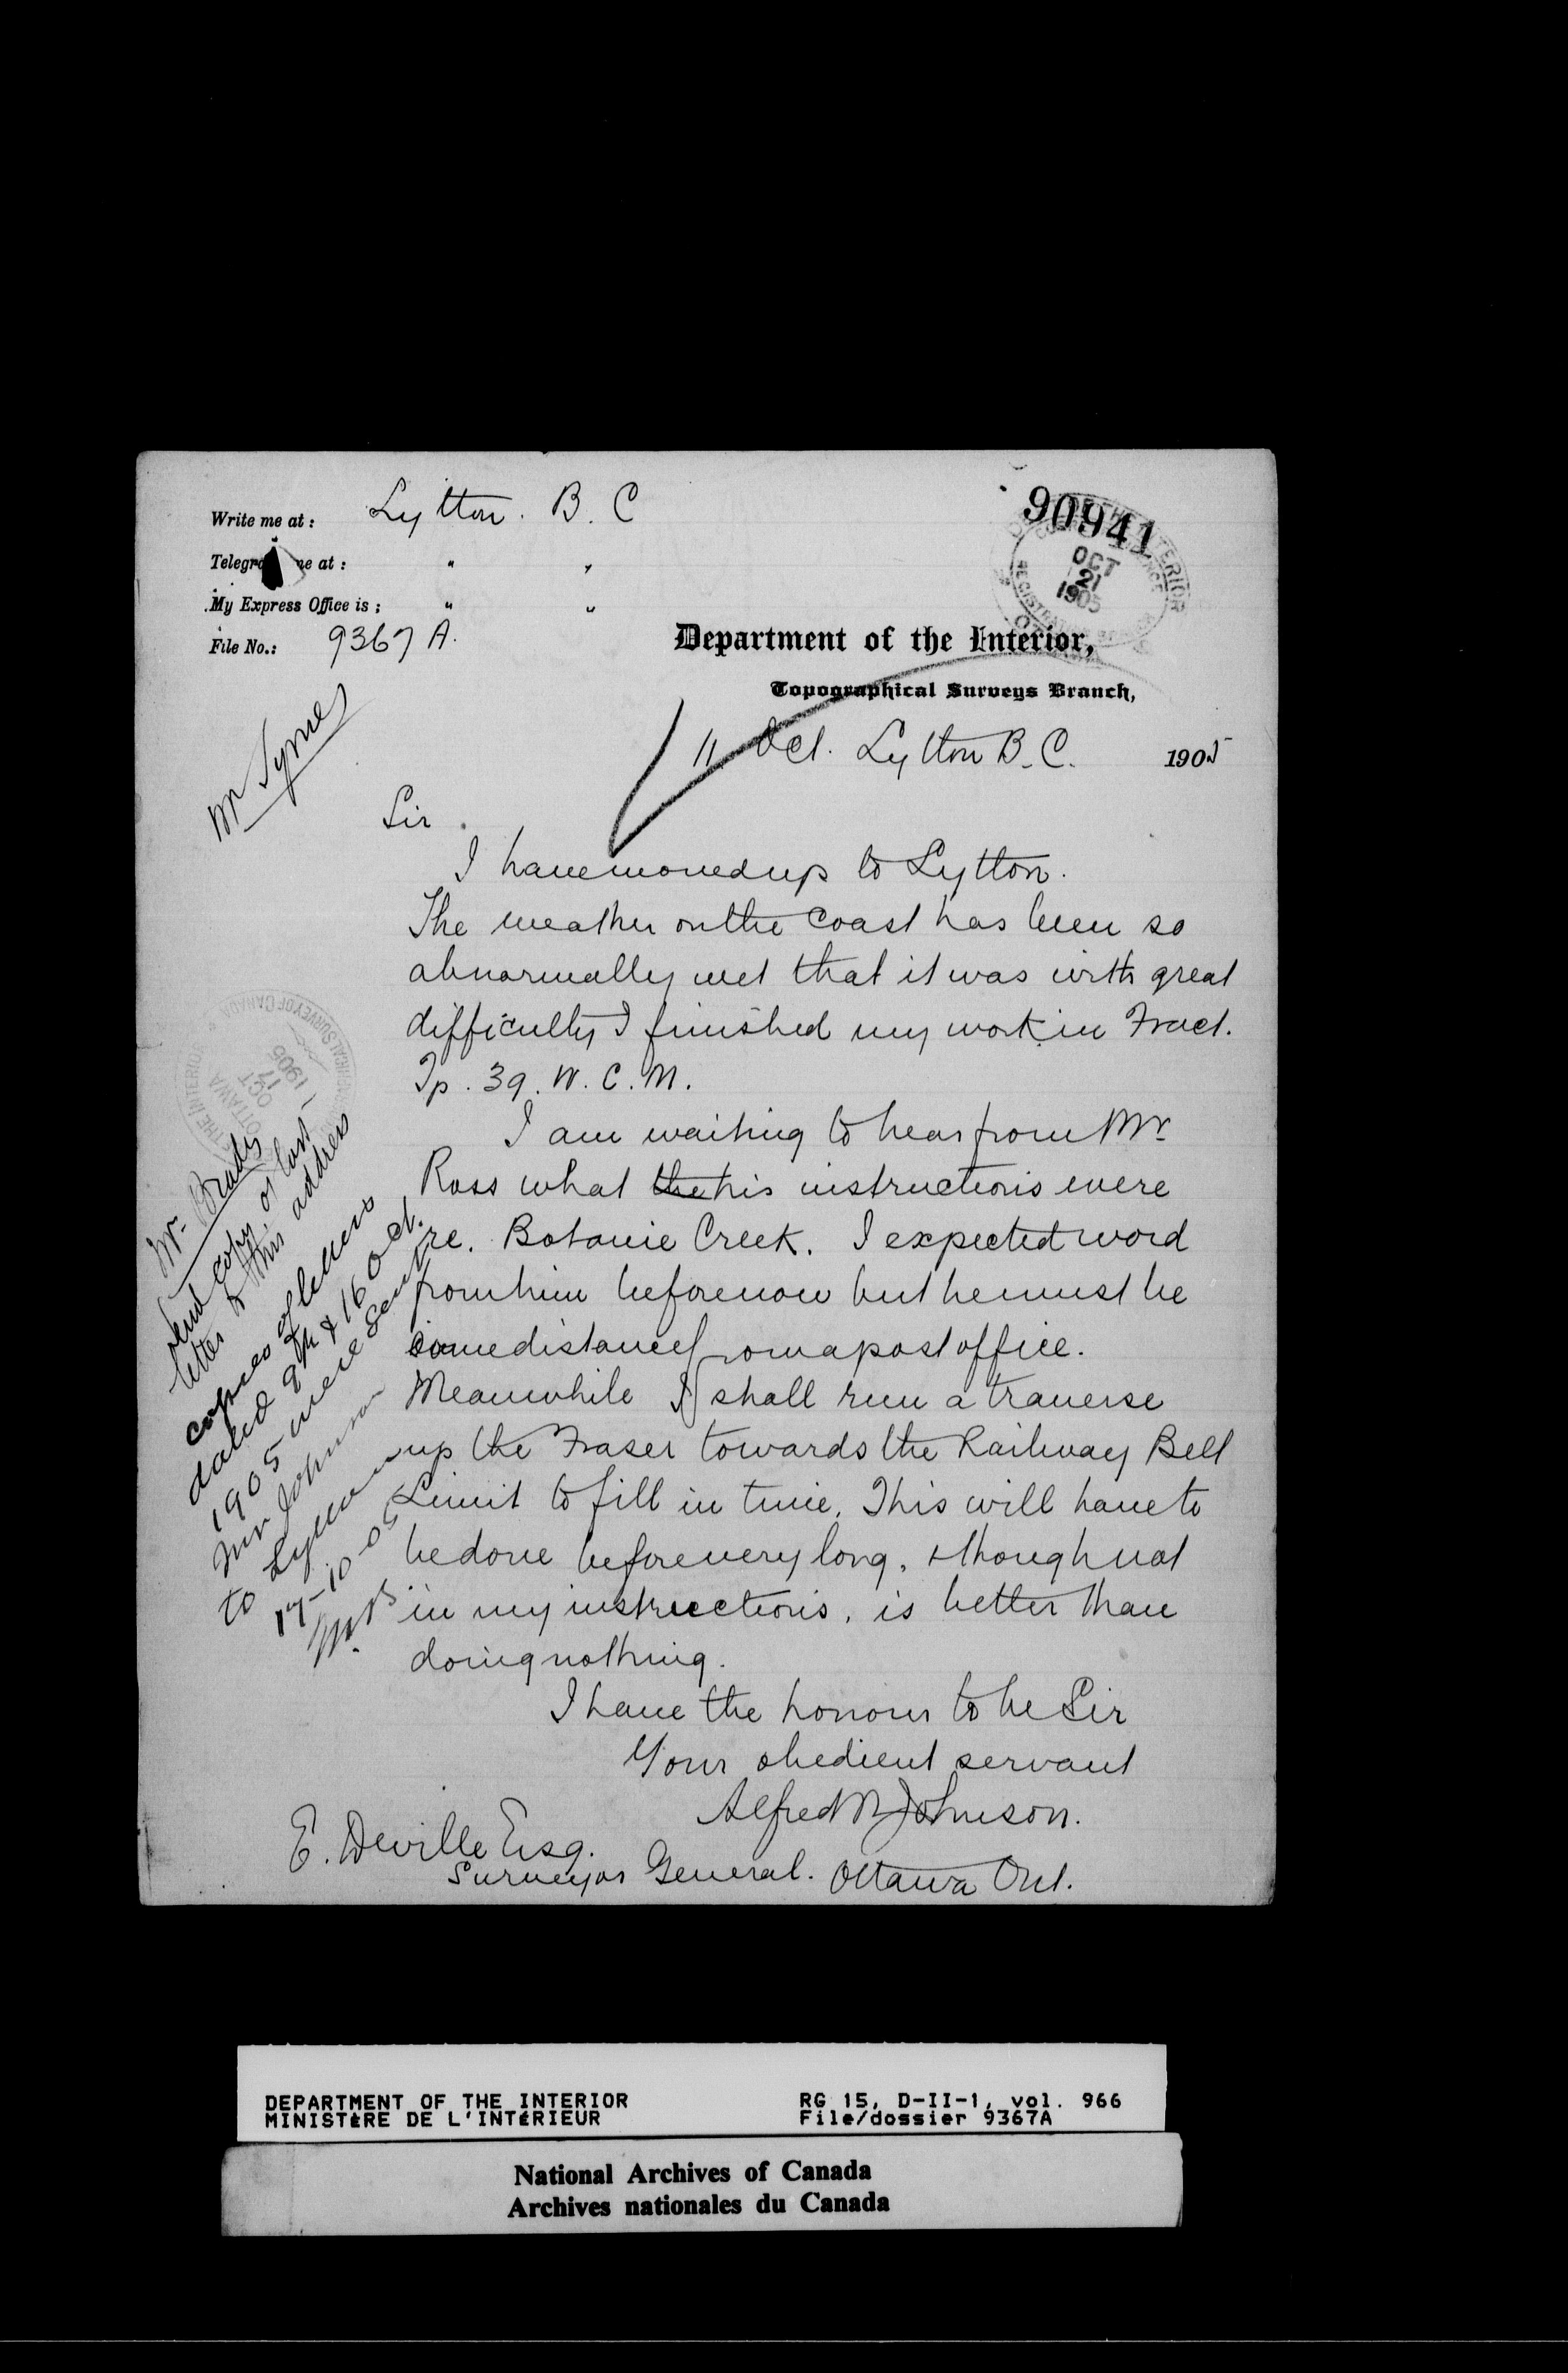 Write me at: Lytton. B. C
Telegra me at: " "
My Express Office is; " "
File No.: 9367 A.
90941
OCT
21
1905
Department of the Interior,
Topographical Surveys Branch,
11 Oct. Lytton B. C. 1905
Mr Symes
Sir.
I have moved up to Lytton.
The weather on the coast has been so
abnormally wet that it was with great
difficulty I finished my work in Fract.
Tp. 39. W. C. M.
I am waiting to hear from Mr.
Ross what the his instructions were
re. Botanie Creek. I expected word
from him before now but he must be
some distance from a post office.
Meanwhile I shall run a traverse
up the Fraser towards the Railway Belt
Limit to fill in time. This will have to
be done before very long, & though not
in my instructions, is better than
doing nothing.
I have the honour to be Sir
Your obedient servant
Alfred W Johnson.
E. Deville Esq.
Surveyor General. Ottawa Ont.
THE INTERIOR
OTTAWA
OCT
17
1905
TOPOGRAPHICAL SURVEY OF CANADA
Mr. Brady
Send copy of last
letter to this address
copies of letters
dated 9th & 16 Oct.
1905 were sent
Mr Johnson
to Lytton
17-10-05
M. B
DEPARTMENT OF THE INTERIOR
MINISTÈRE DE L'INTÉRIEUR
RG 15, D-II-1, vol. 966
File/dossier 9367A
National Archives of Canada
Archives nationales du Canada